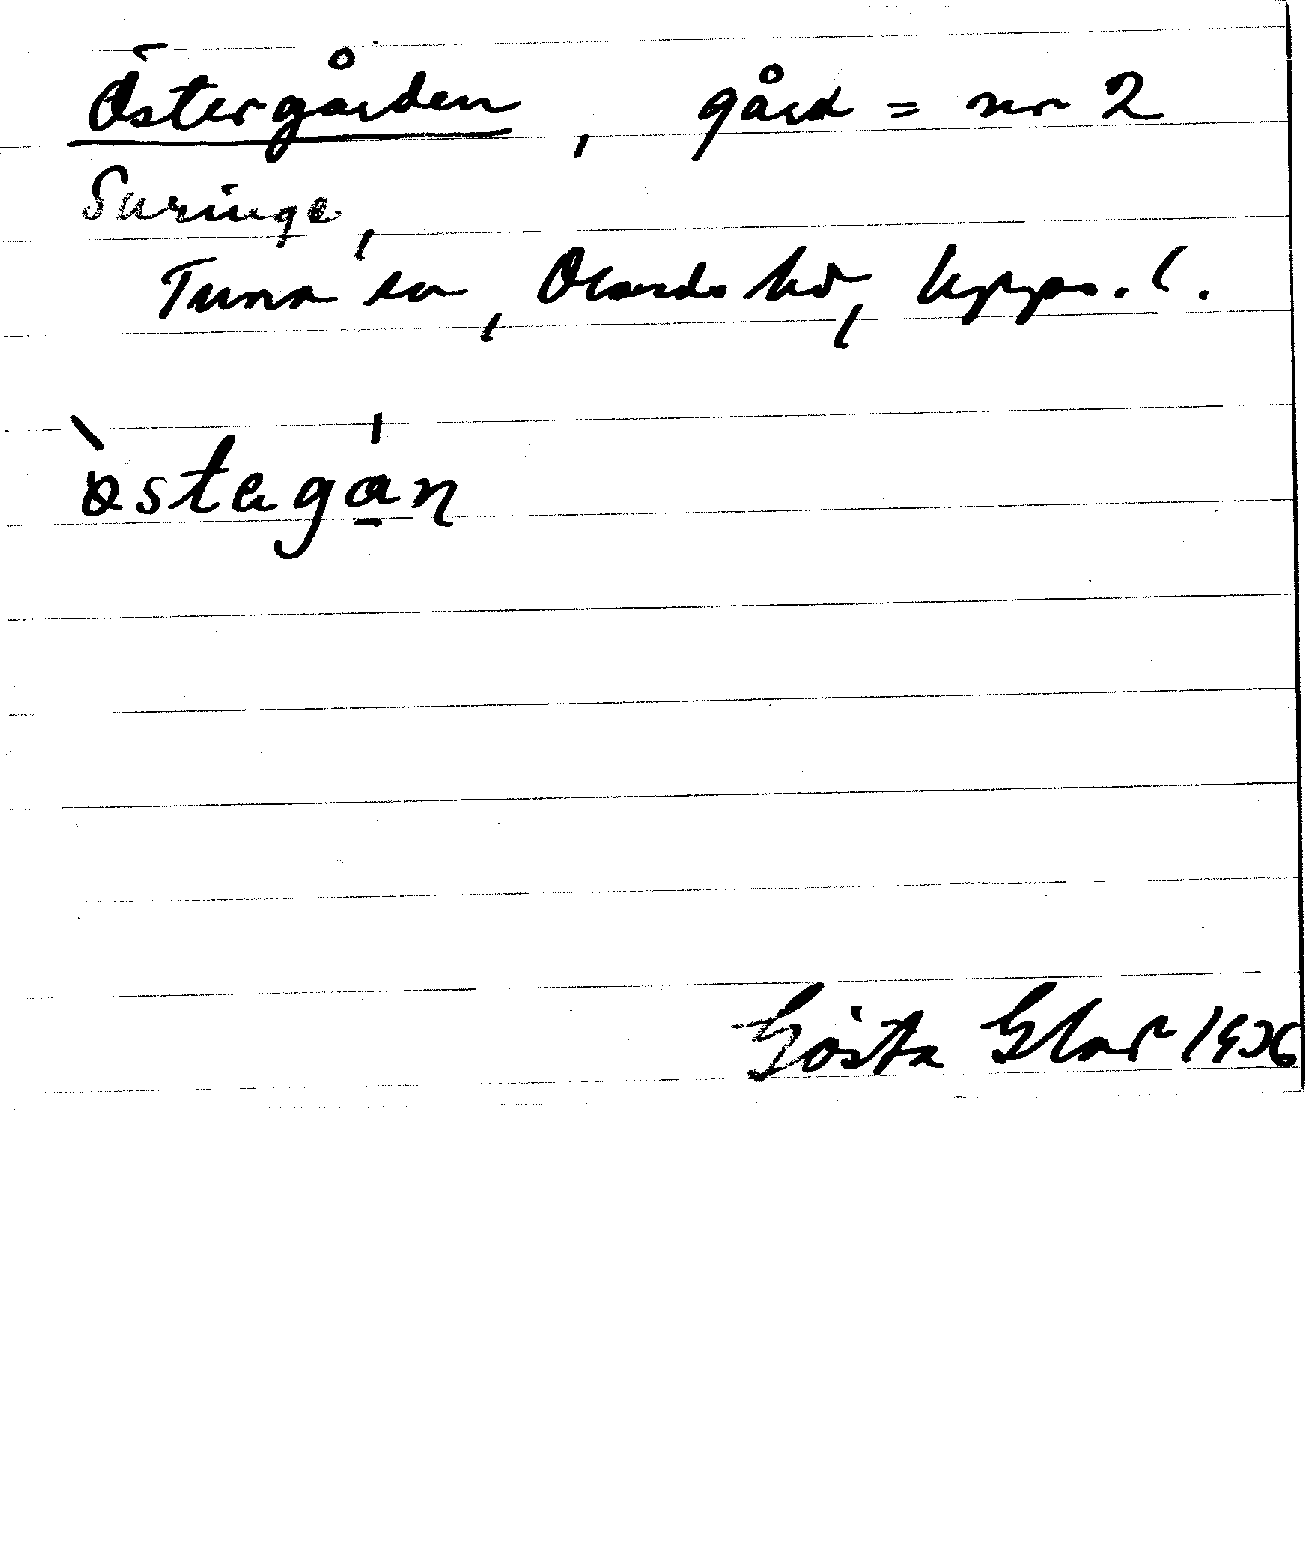 Östergården, gård = nr 2
Suringe,
Tuna sn, Olands hd, Upps. l.
òstagá̱n
Gösta Glar 1936